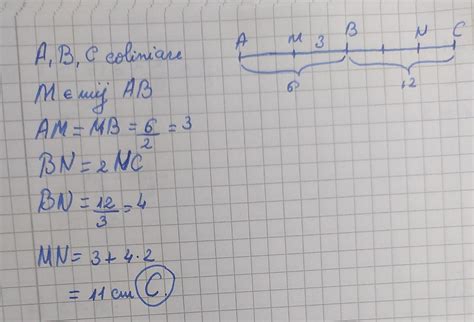 A M 3 B N C
6 12
A, B, C coliniare
M ∈ mij AB
AM = MB = 6/2 = 3
BN = 2 NC
BN = 12/3 = 4
MN = 3 + 4 · 2
= 11 cm C.